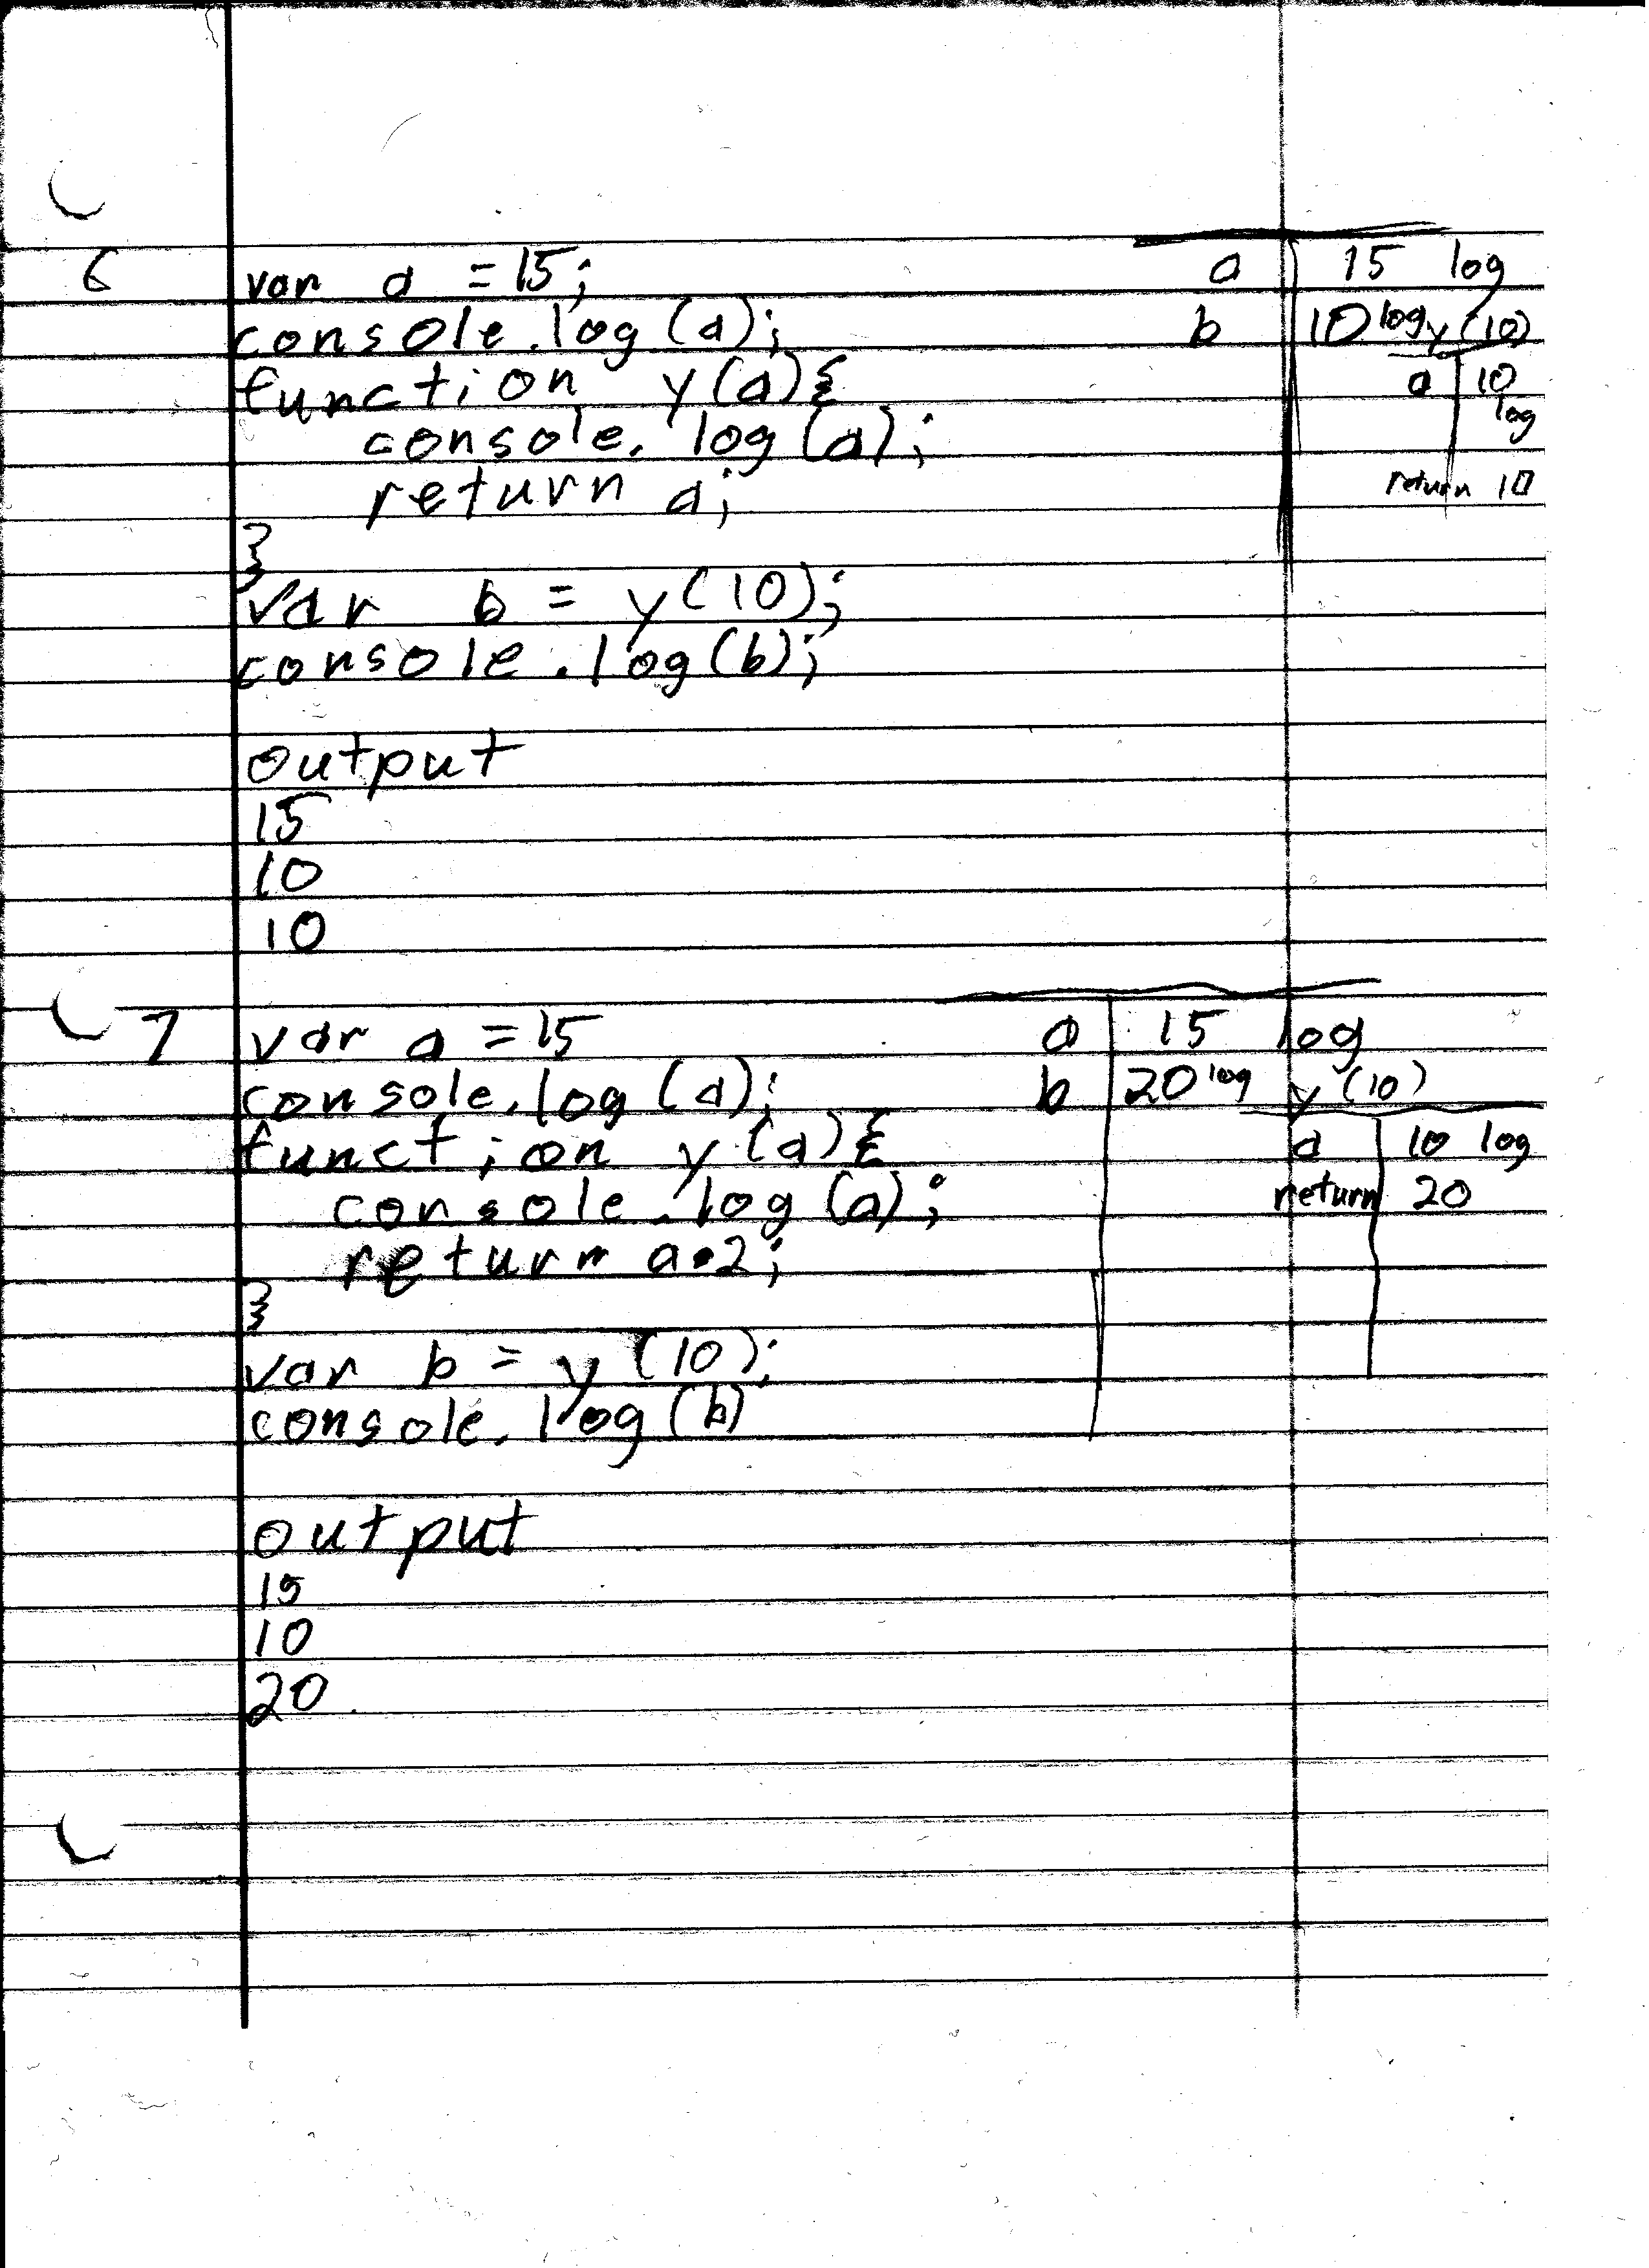 6
var a = 15;
console.log(a);
function y(a){
console.log(a);
return a;
}
var b = y(10);
console.log(b);
output
15
10
10
a 15 log
b 10 log y(10)
a 10
log
return 10
7
var a = 15
console.log(a);
function y(a){
console.log(a);
return a•2;
}
var b = y(10);
console.log(b)
output
15
10
20
a 15 log
b 20 log y(10)
a 10 log
return 20